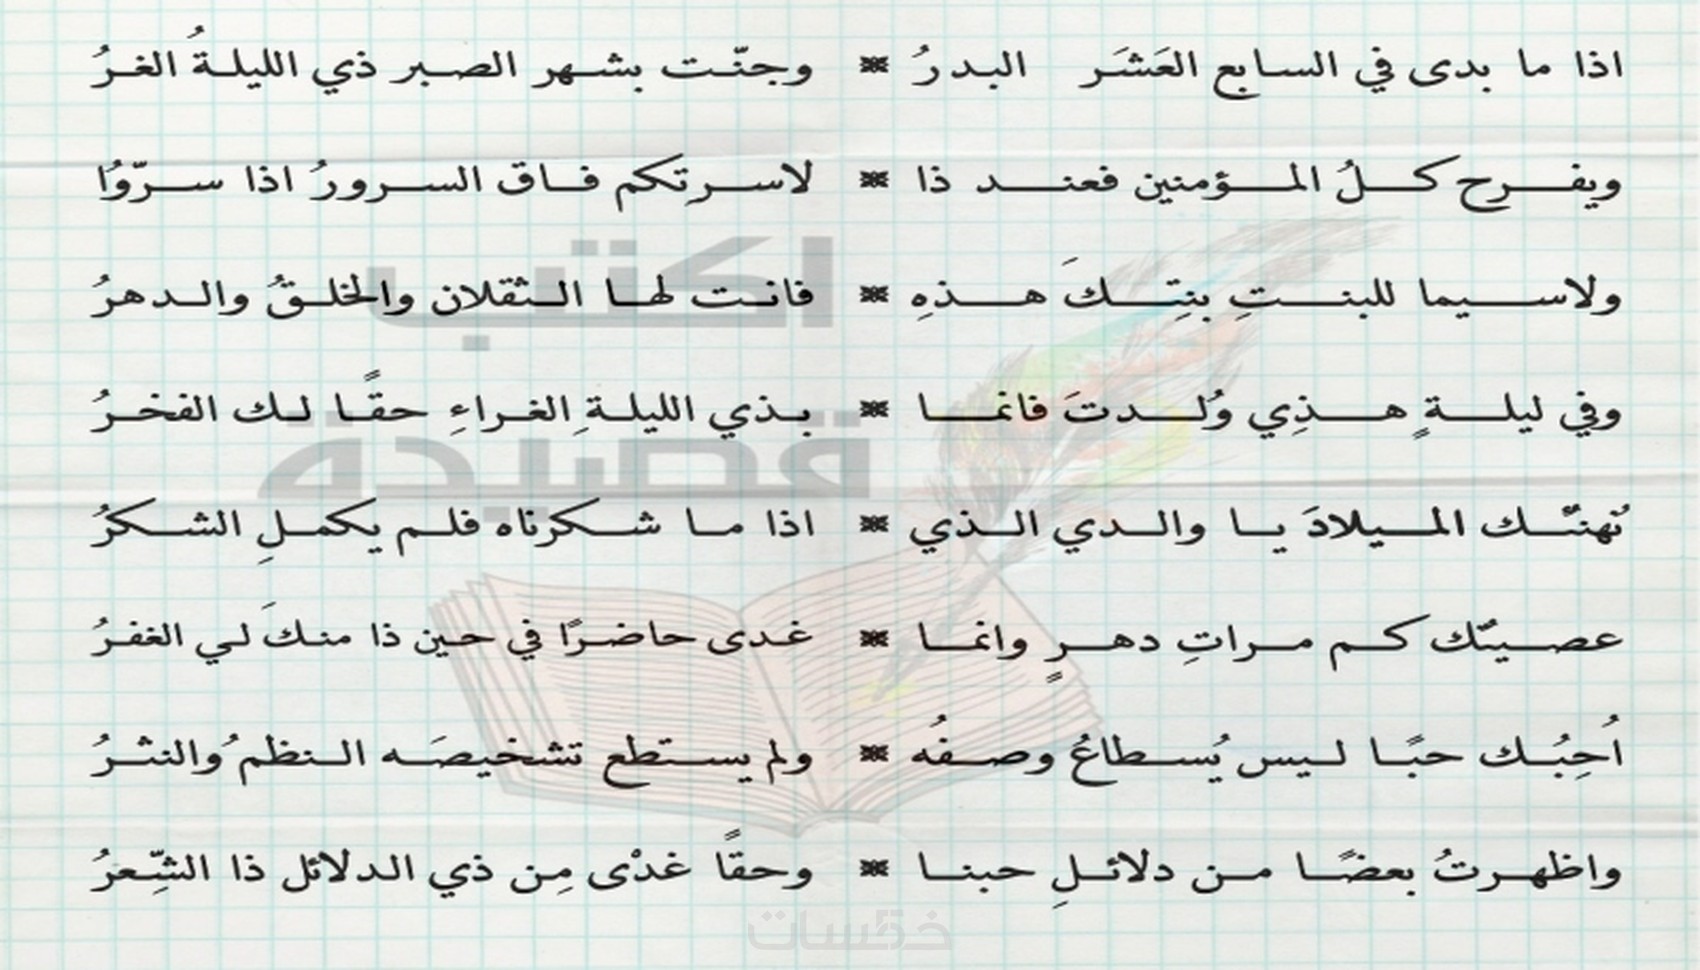 اذا ما بدى في السابع العَشَر البدرُ ※ وجنّت بشهر الصبر ذي الليلةُ الغرُ
ويفرح كلُ المؤمنين فعند ذا ※ لاسرتِكم فاق السرورُ اذا سرّوُا
ولاسيما للبنتِ بنتِكَ هذهِ ※ فانت لها الثقلان والخلقُ والدهرُ
وفي ليلةٍ هذِي وُلدتَ فانما ※ بذي الليلةِ الغراءِ حقًا لك الفخرُ
نُهنئك الميلادَ يا والدي الذي ※ اذا ما شكرناه فلم يكملِ الشكرُ
عصيتُك كم مراتِ دهرٍ وانما ※ غدى حاضرًا في حين ذا منكَ لي الغفرُ
اُحِبُك حبًا ليس يُسطاعُ وصفُه ※ ولم يستطع تشخيصَه النظمُ والنثرُ
واظهرتُ بعضًا من دلائلِ حبنا ※ وحقًا غدْى مِن ذي الدلائل ذا الشِّعرُ
اكتب
قصيدة
خمسات